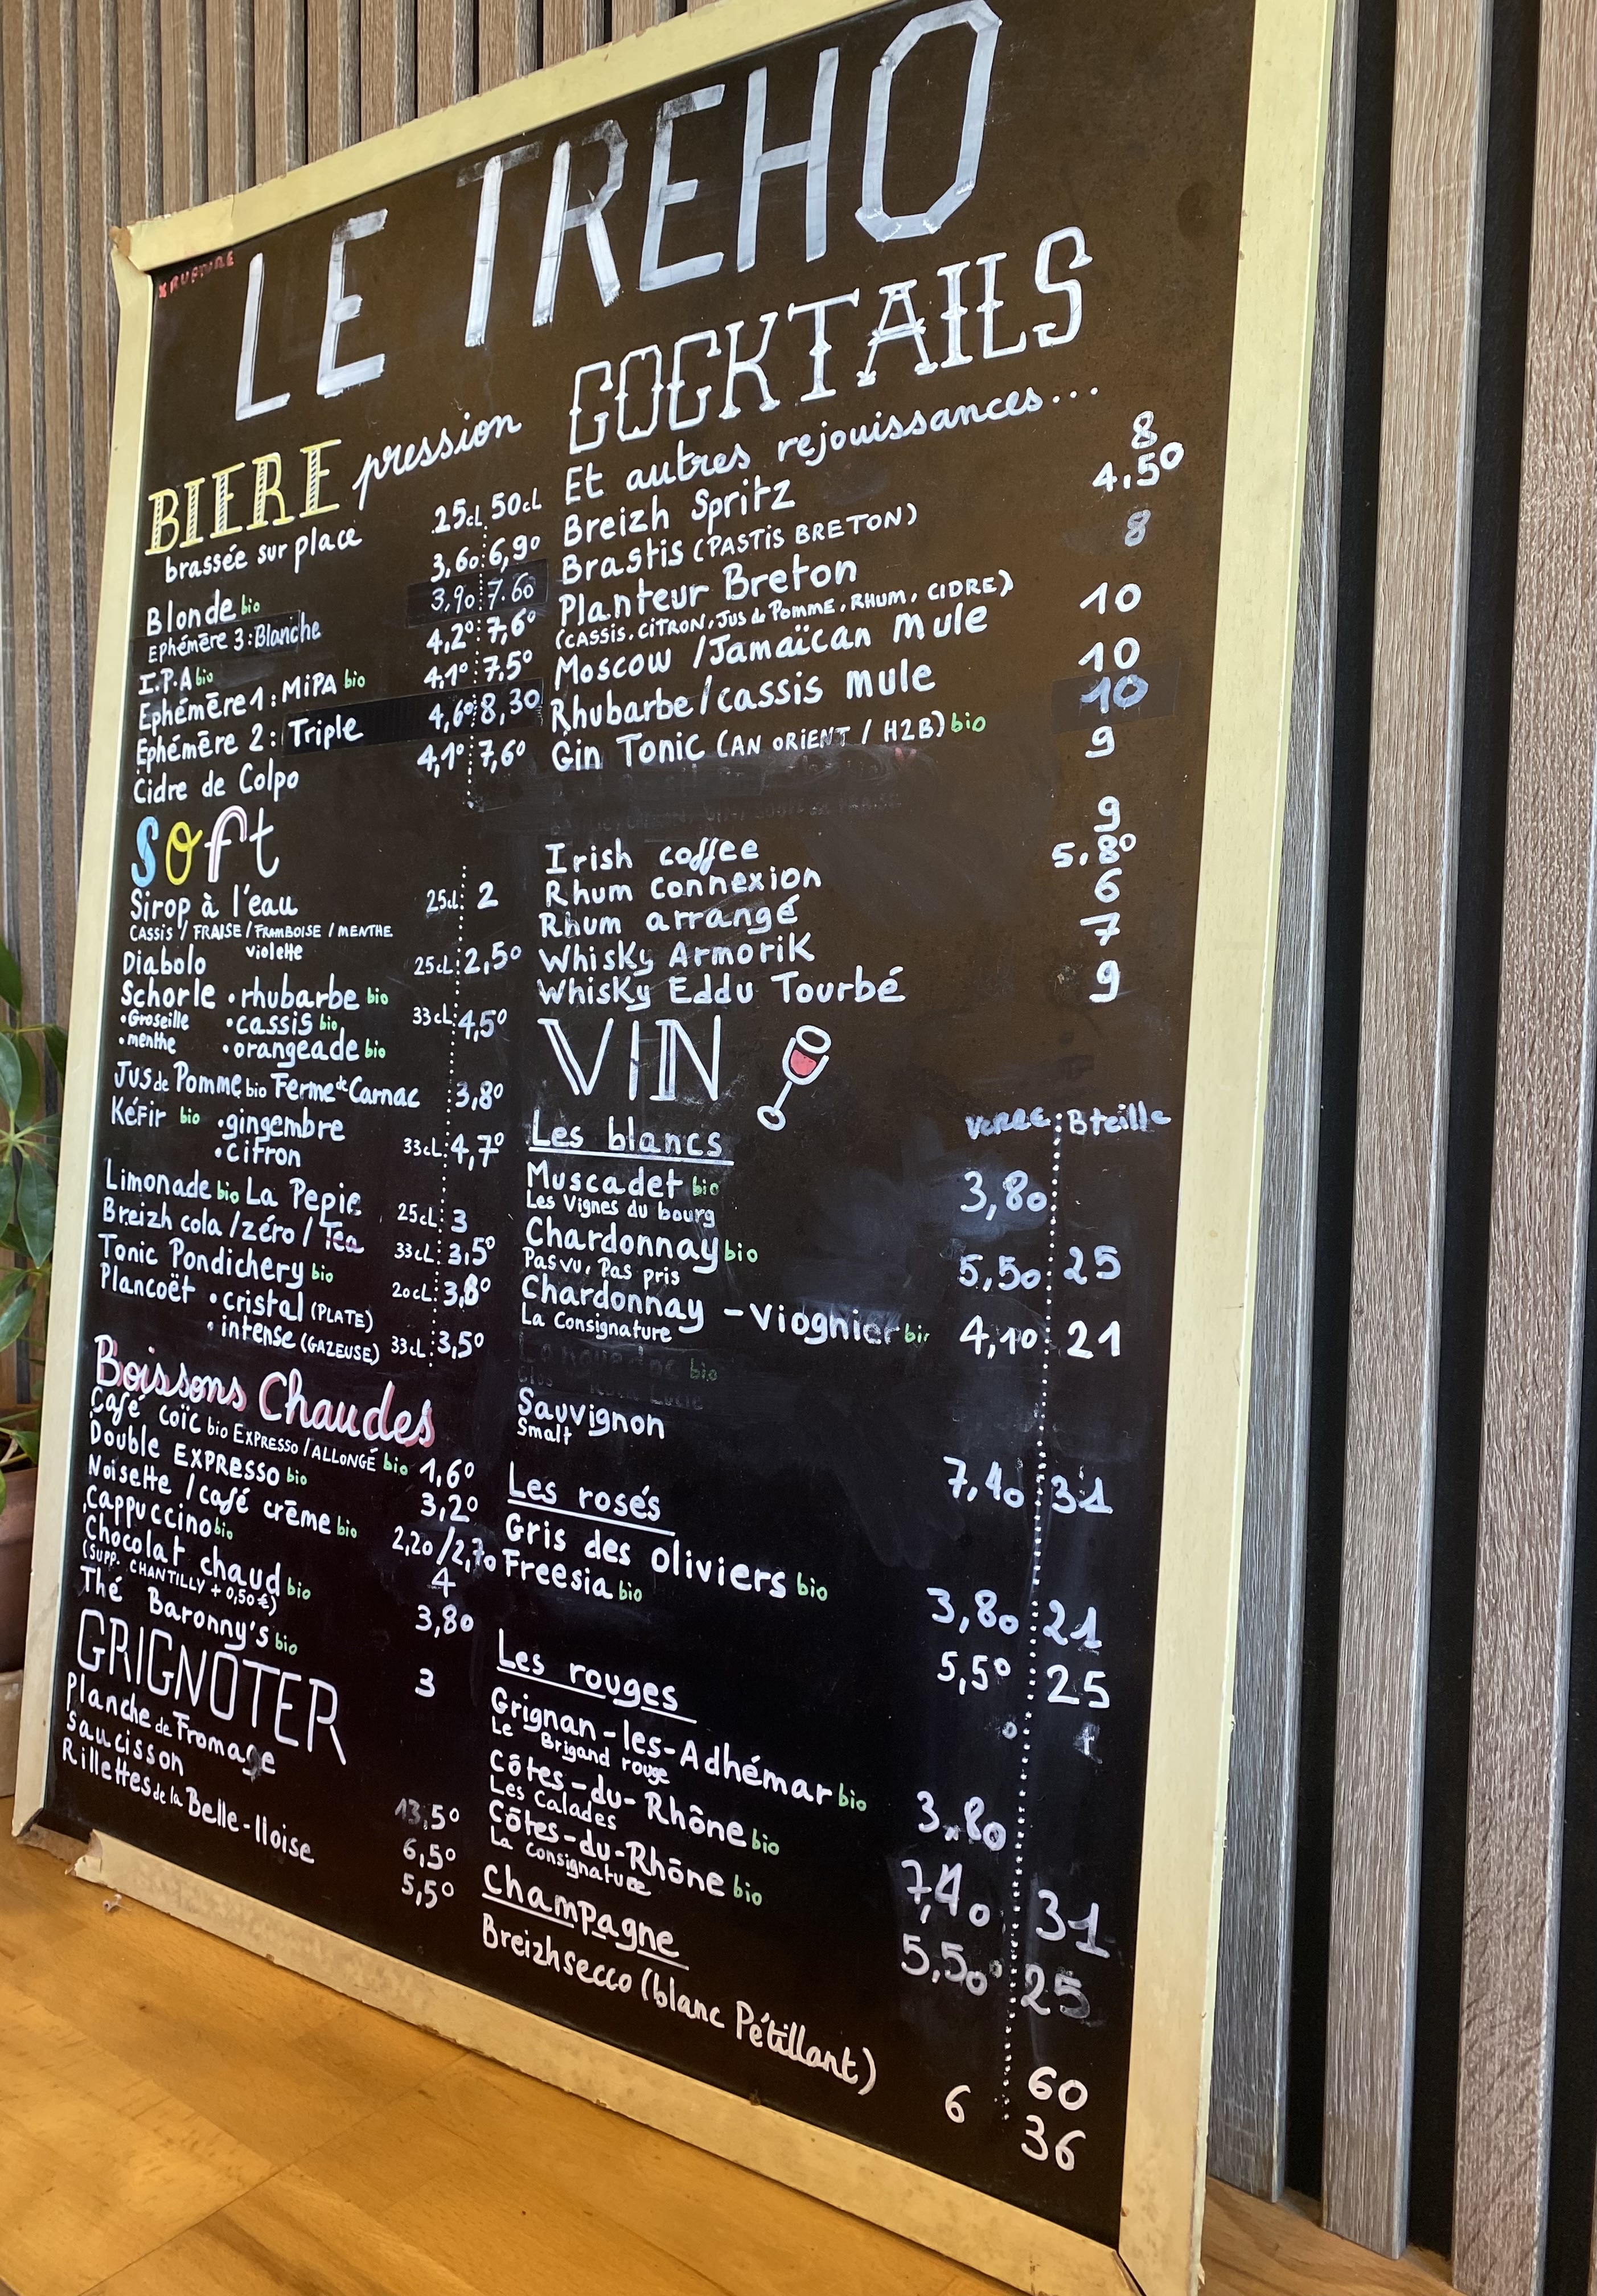 x RUPTURE
LE TREHO
BIERE pression
brassée sur place
25cl 50cl
Blonde bio 3,60 6,90
Ephémère 3: Blanche 3,90 7.60
I.P.A bio 4,20 7,60
Ephémère 1: MIPA bio 4,10 7,50
Ephémère 2: Triple 4,60 8,30
Cidre de Colpo 4,10 7,60
Soft
Sirop à l'eau 25cl 2
CASSIS / FRAISE / FRAMBOISE / MENTHE
violette
Diabolo 25cl 2,50
Schorle • rhubarbe bio
• Groseille • cassis bio 33cl 4,50
• menthe • orangeade bio
Jus de Pomme bio Ferme de Carnac 3,80
Kéfir bio • gingembre
• citron 33cl 4,70
Limonade bio La Pepie 25cl 3
Breizh cola /zéro / Tea 33cl 3,50
Tonic Pondichery bio 20cl 3,80
Plancoët • cristal (PLATE)
• intense (GAZEUSE) 33cl 3,50
Boissons Chaudes
Café coïc bio EXPRESSO / ALLONGÉ bio 1,60
Double EXPRESSO bio 3,20
Noisette / café crème bio 2,20/2,70
Cappuccino bio 4
Chocolat chaud bio 3,80
(SUPP. CHANTILLY + 0,50€)
Thé Baronny's bio 3
GRIGNOTER
Planche de Fromage 13,50
Saucisson 6,50
Rillettes de la Belle-Iloise 5,50
COCKTAILS
Et autres rejouissances...
Breizh Spritz 8
Brastis (PASTIS BRETON) 4.50
Planteur Breton 8
(CASSIS, CITRON, JUS de POMME, RHUM, CIDRE)
Moscow / Jamaïcan Mule 10
Rhubarbe / cassis mule 10
Gin Tonic (AN ORIENT / H2B) bio 10
9
Irish coffee 9
Rhum connexion 5.80
Rhum arrangé 6
Whisky Armorik 7
Whisky Eddu Tourbé 9
VIN
Verre Bteille
Les blancs
Muscadet bio 3,80
Les Vignes du bourg
Chardonnay bio 5,50 25
Pas vu, Pas pris
Chardonnay - Vioghier bio 4,10 21
La Consignature
bio
Sauvignon 7,40 31
Smalt
Les rosés
Gris des oliviers bio 3,80 21
Freesia bio 5,50 25
Les rouges
Grignan-les-Adhémar bio 3,80
Le Brigand rouge
Côtes-du-Rhône bio 7,40 31
Les Calades
Côtes-du-Rhône bio 5,50 25
La Consignature
Champagne 60
Breizhsecco (blanc Pétillant) 6 36